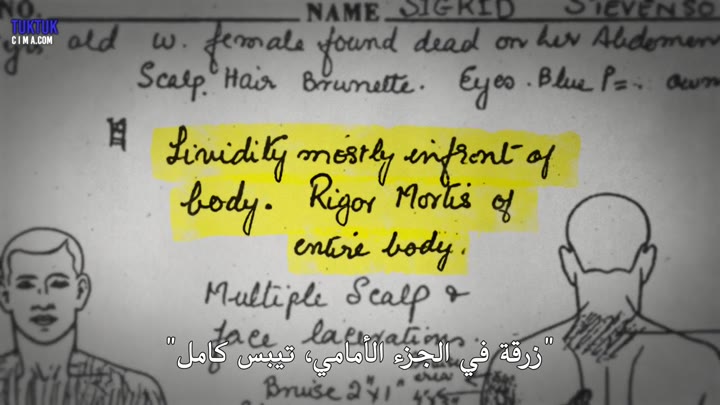 NO. NAME SIGRID STEVENSO
TUKTUK
CIMA.COM
old w. female found dead on her Abdomen
Scalp Hair Brunette. Eyes. Blue P=. own
Lividity mostly infront of
body. Rigor Mortis of
entire body.
Multiple Scalp &
face lacerations.
"زرقة في الجزء الأمامي، تيبس كامل"
Bruise 2"x1"